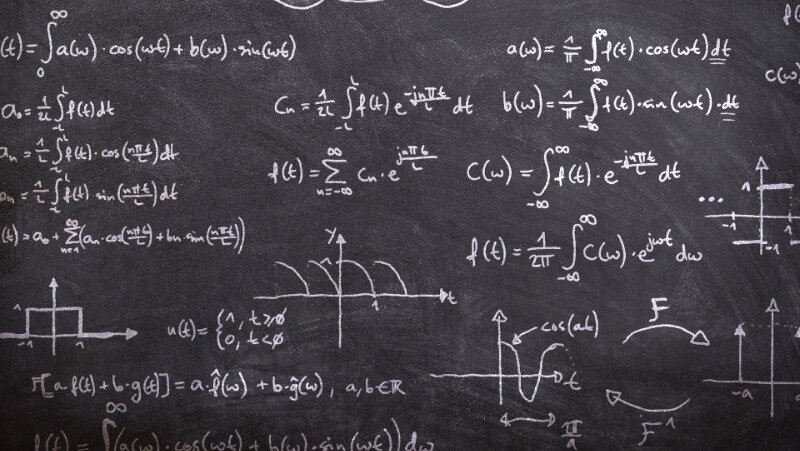 (t) = ∫₀^∞ a(ω) · cos(ωt) + b(ω) · sin(ωt)
a(ω) = 1/π ∫_{-∞}^{∞} f(t) · cos(ωt) dt
C(ω)
a₀ = 1/2L ∫_{-L}^{L} f(t) dt
Cn = 1/2L ∫_{-L}^{L} f(t) e^{-jnπt/L} dt
b(ω) = 1/π ∫_{-∞}^{∞} f(t) · sin(ωt) · dt
an = 1/L ∫_{-L}^{L} f(t) · cos(nπt/L) dt
f(t) = ∑_{n=-∞}^{∞} Cn · e^{jnπt/L}
C(ω) = ∫_{-∞}^{∞} f(t) · e^{-jnπt/L} dt
= 1/L ∫_{-L}^{L} f(t) · sin(nπt/L) dt
... 1 -1 -1
(t) = a₀ + ∑_{n=1}^{∞} (an · cos(nπt/L) + bn · sin(nπt/L))
f(t) = 1/2π ∫_{-∞}^{∞} C(ω) · e^{jωt} dω
y 1 1 t
-1 1
u(t) = {1, t≥0
0, t<0
cos(at) t π/a
F
F⁻¹
-a
F[a·f(t) + b·g(t)] = a·f̂(ω) + b·ĝ(ω), a,b∈ℝ
f(t) = ∫^∞ (a(ω) · cos(ωt) + b(ω) · sin(ωt)) dω